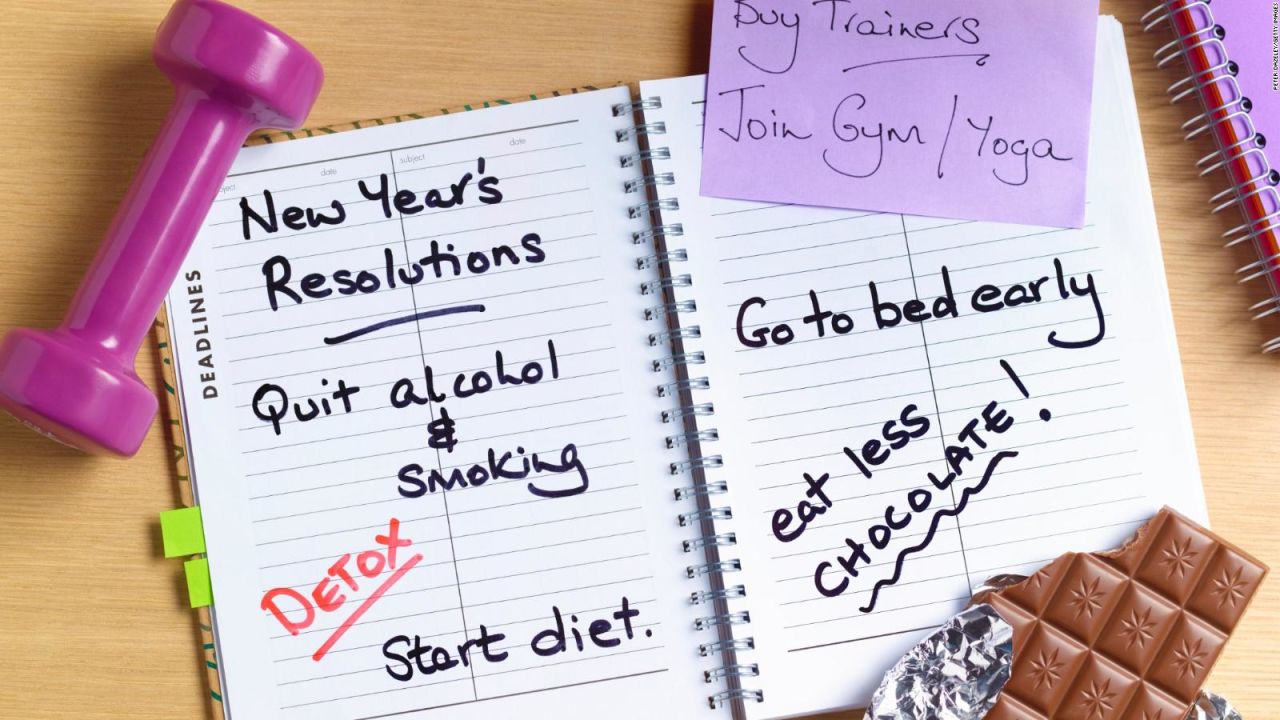 Buy Trainers
Join Gym / Yoga
subject
date
date
DEADLINES
New Year's
Resolutions
Quit alcohol
&
smoking
DETOX
Start diet.
Go to bed early
eat less
CHOCOLATE!
PETER DAZELEY/GETTY IMAGES